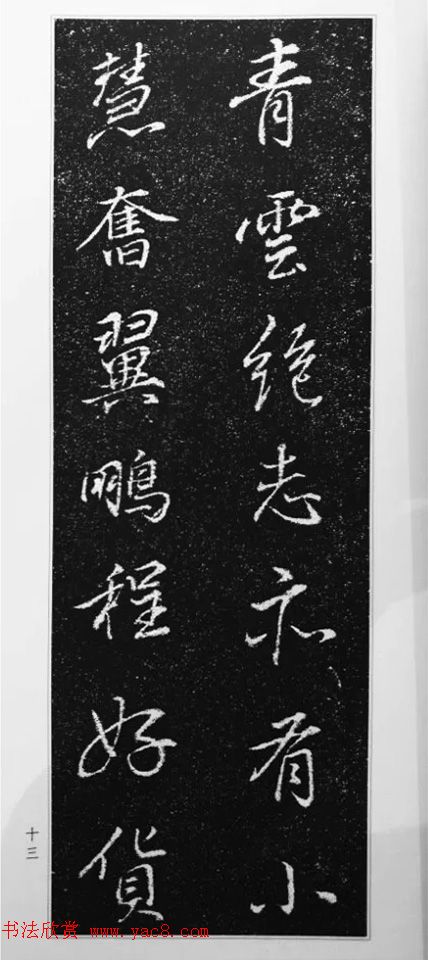 青雲絶志亦有小
慧奮翼鵬程好貨
十三
书法欣赏 www.yac8.com